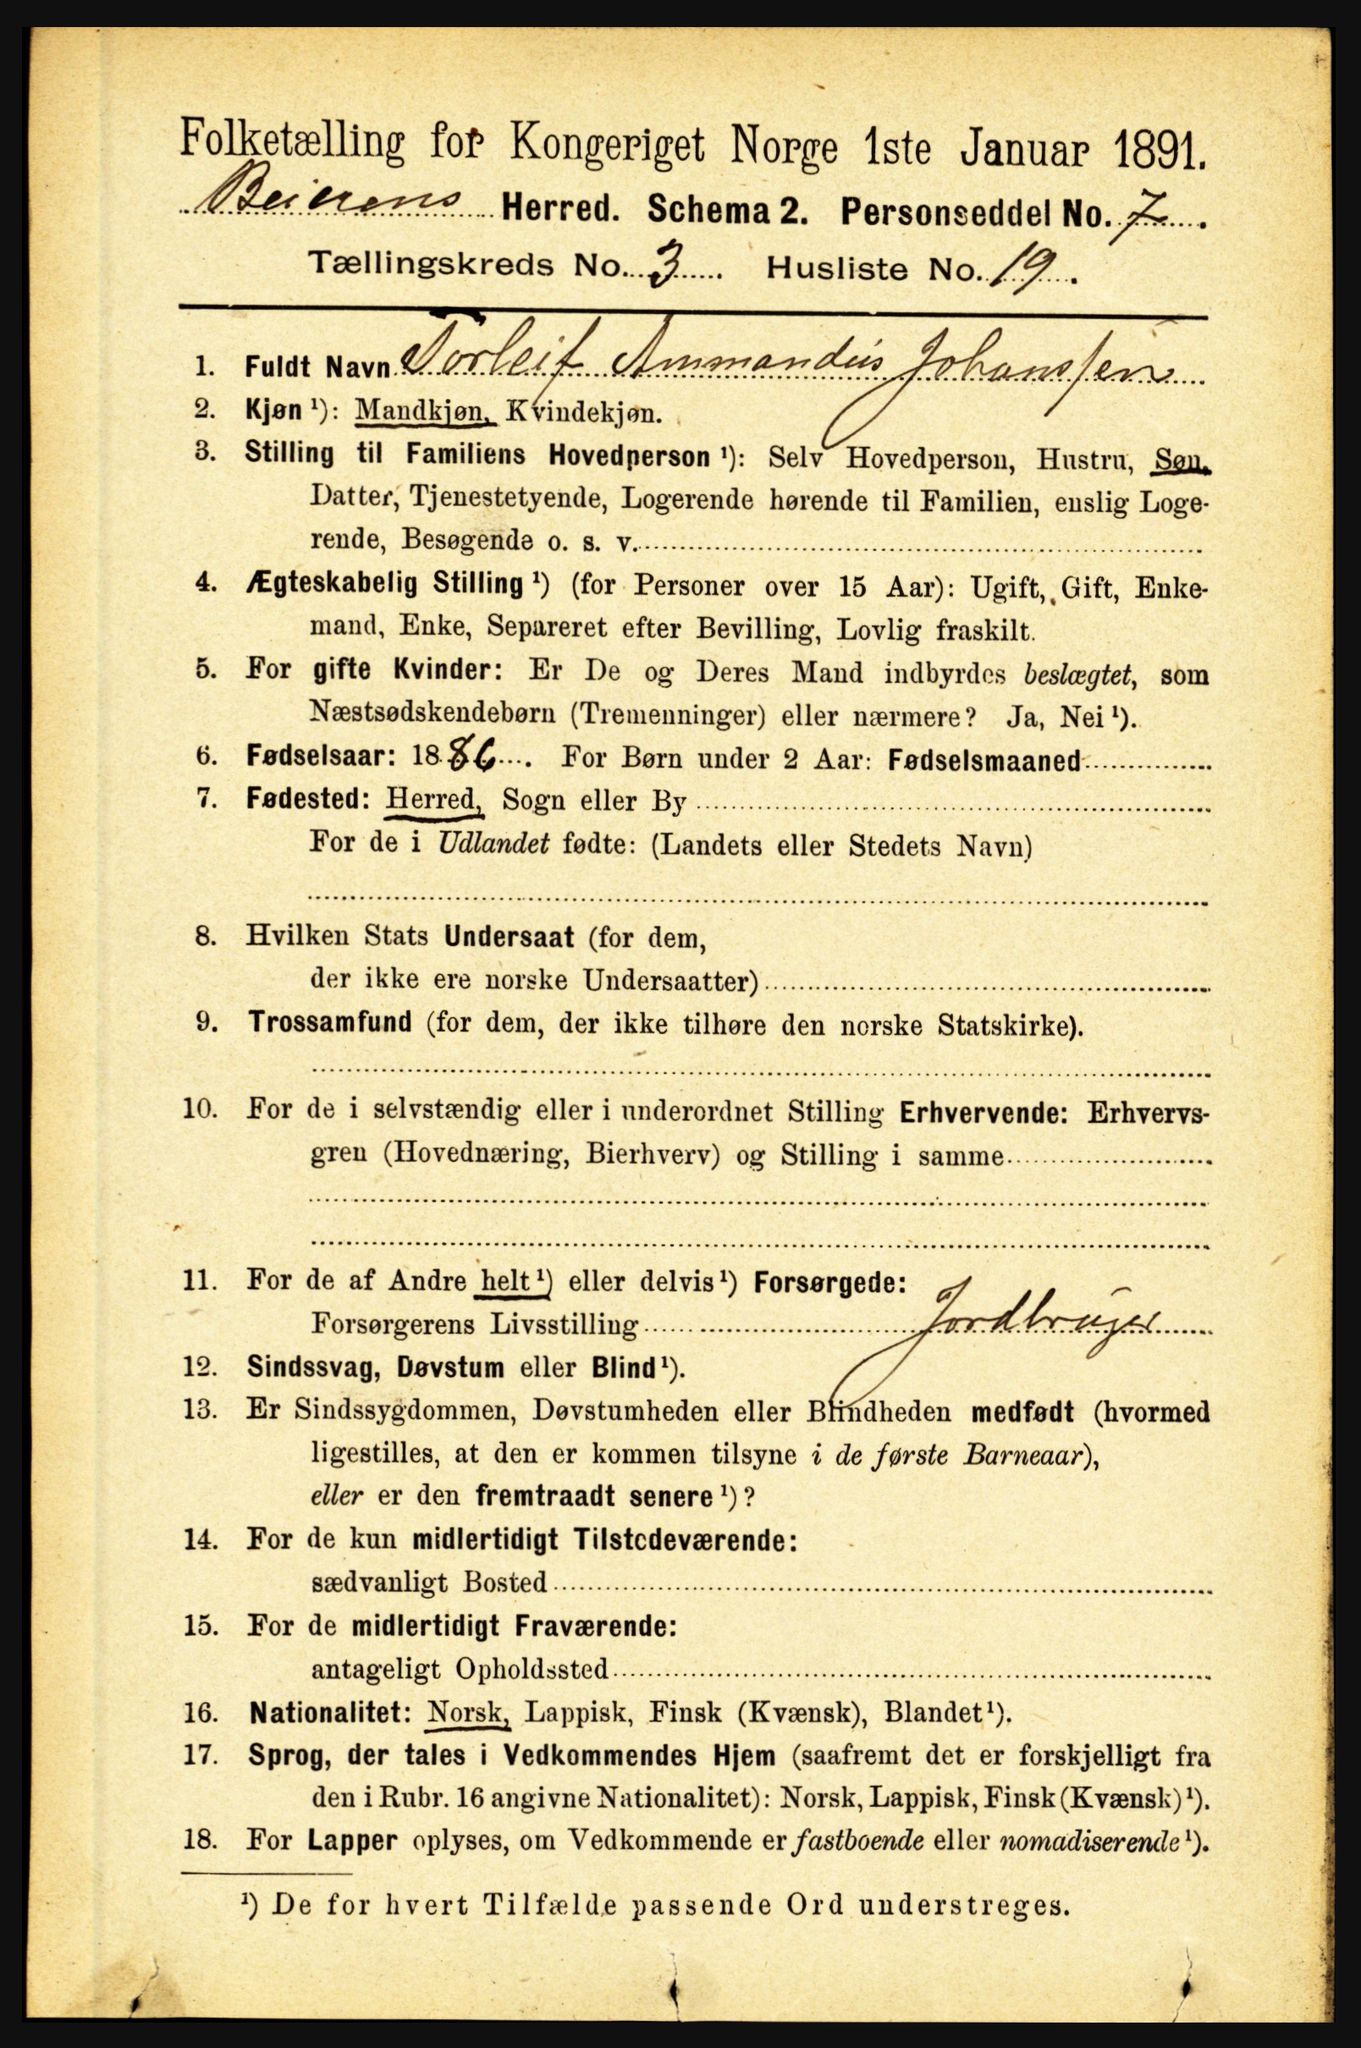 Folketælling for Kongeriget Norge 1ste Januar 1891.
Beierens Herred. Schema 2. Personseddel No. 7.
Tællingskreds No. 3 Husliste No. 19.
1. Fuldt Navn Torleif Ammandus Johanssen
2. Kjøn ¹): Mandkjøn, Kvindekjøn.
3. Stilling til Familiens Hovedperson ¹): Selv Hovedperson, Hustru, Søn,
Datter, Tjenestetyende, Logerende hørende til Familien, enslig Loge-
rende, Besøgende o. s. v.
4. Ægteskabelig Stilling ¹) (for Personer over 15 Aar): Ugift, Gift, Enke-
mand, Enke, Separeret efter Bevilling, Lovlig fraskilt.
5. For gifte Kvinder: Er De og Deres Mand indbyrdes beslægtet, som
Næstsødskendebørn (Tremenninger) eller nærmere? Ja, Nei ¹).
6. Fødselsaar: 1886. For Børn under 2 Aar: Fødselsmaaned
7. Fødested: Herred, Sogn eller By
For de i Udlandet fødte: (Landets eller Stedets Navn)
8. Hvilken Stats Undersaat (for dem,
der ikke ere norske Undersaatter)
9. Trossamfund (for dem, der ikke tilhøre den norske Statskirke).
10. For de i selvstændig eller i underordnet Stilling Erhvervende: Erhvervs-
gren (Hovednæring, Bierhverv) og Stilling i samme
11. For de af Andre helt ¹) eller delvis ¹) Forsørgede:
Forsørgerens Livsstilling Jordbruger
12. Sindssvag, Døvstum eller Blind ¹).
13. Er Sindssygdommen, Døvstumheden eller Blindheden medfødt (hvormed
ligestilles, at den er kommen tilsyne i de første Barneaar),
eller er den fremtraadt senere ¹)?
14. For de kun midlertidigt Tilstedeværende:
sædvanligt Bosted
15. For de midlertidigt Fraværende:
antageligt Opholdssted
16. Nationalitet: Norsk, Lappisk, Finsk (Kvænsk), Blandet ¹).
17. Sprog, der tales i Vedkommendes Hjem (saafremt det er forskjelligt fra
den i Rubr. 16 angivne Nationalitet): Norsk, Lappisk, Finsk (Kvænsk) ¹).
18. For Lapper oplyses, om Vedkommende er fastboende eller nomadiserende ¹).
¹) De for hvert Tilfælde passende Ord understreges.